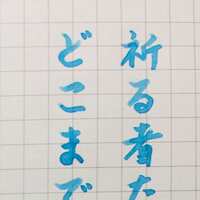 祈る者た
どこまで